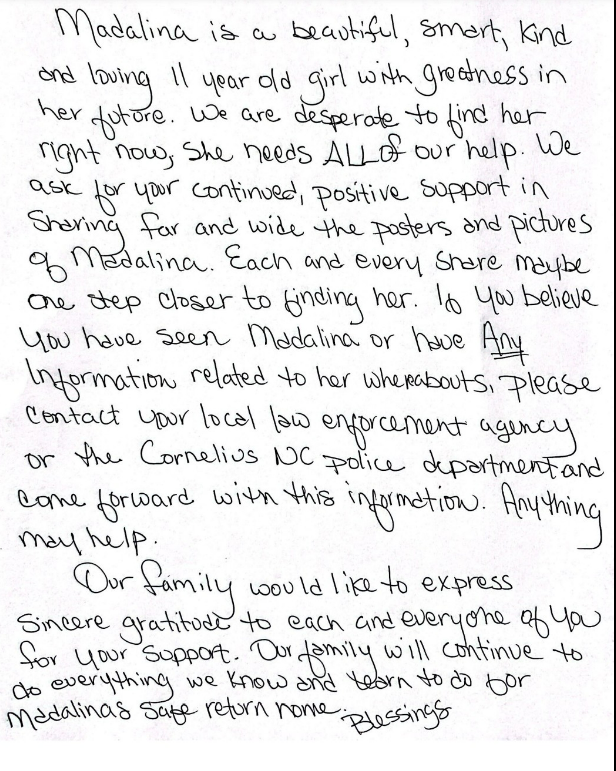 Madalina is a beautiful, smart, kind
and loving 11 year old girl with greatness in
her future. We are desperate to find her
right now, She needs ALL of our help. We
ask for your continued, positive support in
Sharing far and wide the posters and pictures
of Madalina. Each and every share maybe
one step closer to finding her. If you believe
you have seen Madalina or have Any
Information related to her whereabouts, please
contact your local law enforcement agency
or the Cornelius NC police department and
come forward with this information. Anything
may help.
Our family would like to express
sincere gratitude to each and everyone of you
for your support. Our family will continue to
do everything we know and learn to do for
Madalinas safe return home. Blessings